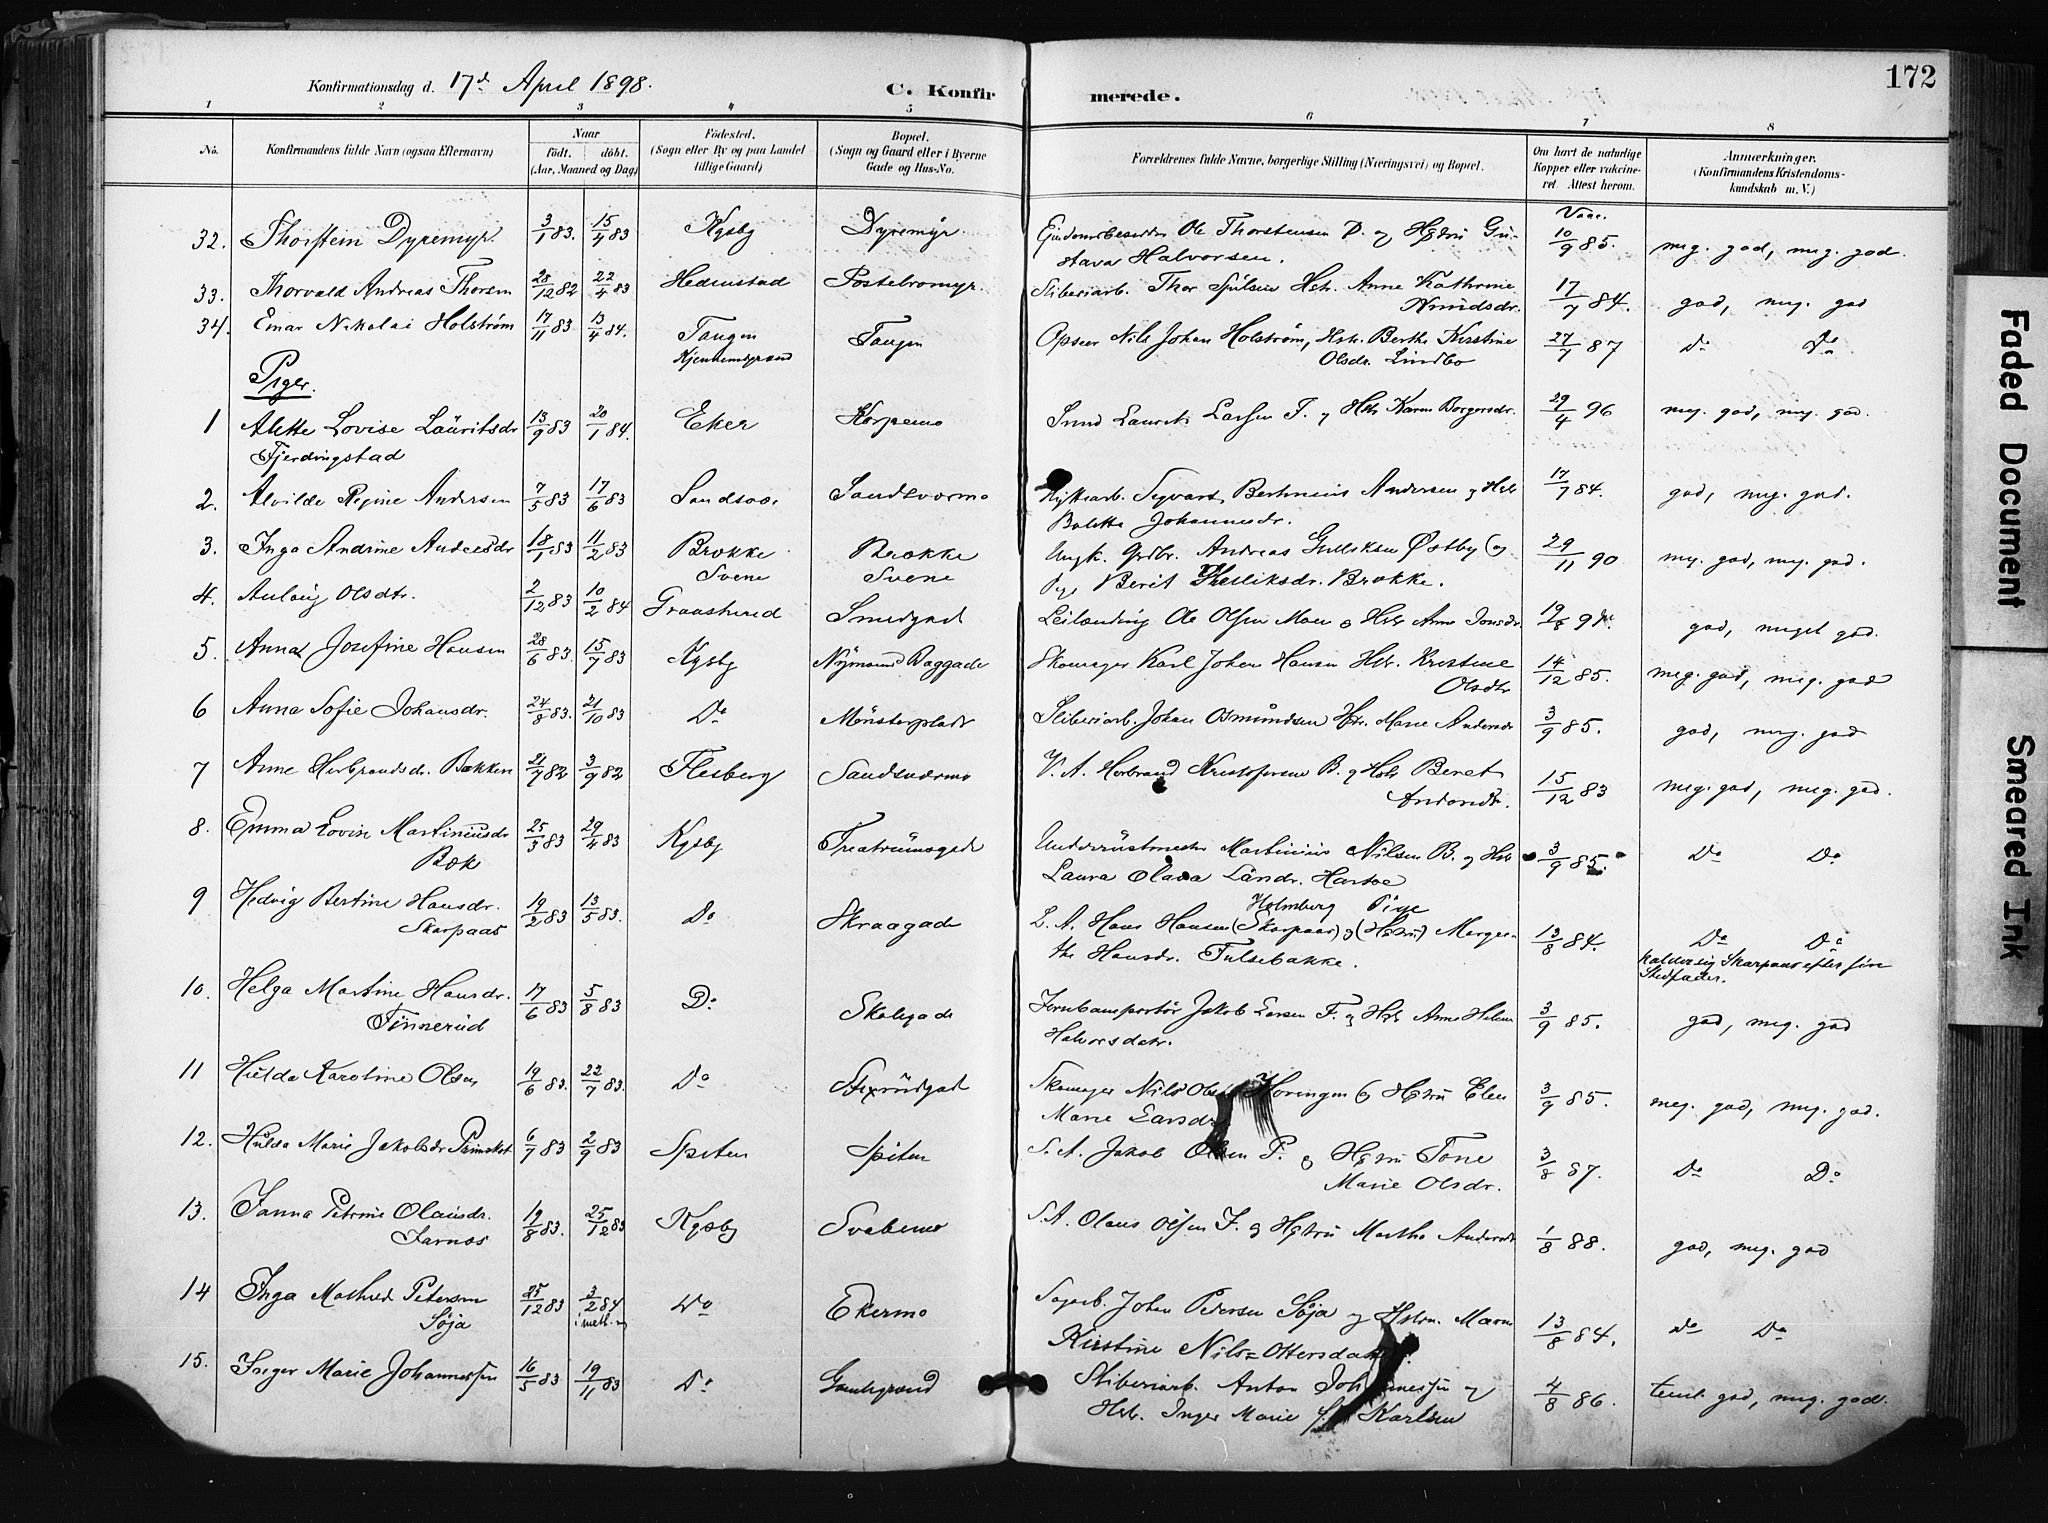 Konfirmationsdag d. 17d April 1898.
C. Konfirmerede.
172
1 2 3 4 5 6 7 8
No.
Konfirmandens fulde Navn (ogsaa Efternavn)
Naar
födt. döbt.
(Aar, Maaned og Dag)
Födested.
(Sogn eller By og paa Landet
tillige Gaard)
Bopæl.
(Sogn og Gaard eller i Byerne
Gade og Hus-No.
Forældrenes fulde Navne, borgerlige Stilling (Næringsvei) og Bopæl.
Om havt de naturlige
Kopper eller vakcine-
ret. Attest herom.
Anmærkninger.
(Konfirmandens Kristendoms-
kundskab m. V.)
Vacc.
32. Thorstein Dyremyr. 3/1 83. 15/4 83 Kgsbg Dyremyr. Ole Thorstensen D. og Hstru Gu-
stava Halvorsen. 10/9 85. meg. god, meg. god.
33. Thorvald Andreas Thorsen 28/12 82 22/4 83 Hedenstad Thor Hstr. Anne Kathrine
Knudsdr. 17/7 84. god, meg. god
34. Einar Nikolai Holstrøm 17/11 83 13/4 84. Tangen Tangen Opseer Nils Johan Holstrøm, Hstr. Berthe Kirstine
Olsdr. Lindbo 27/7 87 Do Do
Piger.
1 Alette Lovise Lauritsdr
Fjerdingstad 13/9 83 20/1 84. Eker Korpemo Laurits Larsen F. og Hstr Karen Borgersdr. 29/4 96 meg. god, meg. god.
2. Alvilde Regine Andersen 7/5 83 17/6 83 Sandsvær Sandsværmo Bernhnius Andersen og Hstr
Bolette Johannesdr. 17/7 84. god, meg. god.
3. Inga Andrine Andersdr 18/1 83 11/2 83 Brække
Svene Brække
Svene Ungk. Grdbr. Andreas Gulliksen Østby og
Pige Berit Brække. 29/11 90 meg. god, meg. god.
4. Aulaug Olsdtr. 2/12 83 10/2 84 Smedgad Leilænding Ole Olsen Moen og Hstr Anne Jonsdr. god, meget god.
5. Anna Josefine Hansen 28/6 83. 15/7 83 Kgsbg Nymoens Baggade Skomager Karl Johan Hansen Hstr. Kristine
Olsdtr 14/12 85. meg. god, meg. god
6 Anna Sofie Johansdr. 24/8 83. 21/10 83 Do Mønsterplads Sliberiarb. Johan Osmundsen Hstr. Marie Andersdr 3/9 85. god, meg. god
7 Anne Herbrandsdr. Bakken 21/7 82 3/9 82 Flesberg Sandsværmo V. A. Herbrand Kristofersen B. og Hstr Beret
15/12 83 meg. god, meg. god.
8. Emma Lovise Martinusdr
Bæk 25/3 83 29/4 83 Kgsbg Theatrumsgade Martinius Nilsen B. og Hstr
Laura Olava 3/9 85. Do Do
9 Hedvig Bertine Hansdr.
Skarpaas 19/2 83 13/5 83. Do Skraagade Holmberg Pige
L. A. Hans Hansen (Skarpaas) og (Hstru) Margre-
the Hansdr. Tulsebakke. 13/8 84. Do Do
kalder sig Skarpaas efter sin
Stedfader.
10. Helga Martine Hansdr.
Finnerud 17/6 83 5/8 83 Do Skolegade Jernbaneportør Jakob Larsen F. og Hstr Anne Helene
Halvorsdatr. 3/9 85. god, meg. god
11 Hulda Karoline Olsen 19/6 83. 22/7 83. Do Skomager Nils Olsen Horingen og Hstru Elen
Marie Larsdr. 3/9 85. meg. god, meg. god.
12. Hulda Marie Jakobsdr 6/7 83 2/9 83 Spiten Spiten S. A. Jakob Olsen P. og Hstru Tone
Marie Olsdr. 3/8 87. Do Do
13. Janna Petrine Olausdr.
Jarnæs 19/8 83. 25/12 83 Kgsbg Svabemo S. A. Olaus Olsen J. og Hstru Martha Andersdr 1/8 88. god, meg. god
14 Inga Mathea Petersen
Søja 25/12 83 3/2 84
i meth. Do Ekermo Johan Pedersen Søja og Hstru. Maren
Kirstine Nils=Ottersdatter. 13/8 84. Do Do
15. Inger Marie Johannessen 16/5 83 19/11 83 Do Gamlegrænd Sliberiarb. Anton Johannessen og
Hstr. Inger Marie Karlsen 4/8 86. teml. god, meg. god.
Faded Document
Smeared Ink